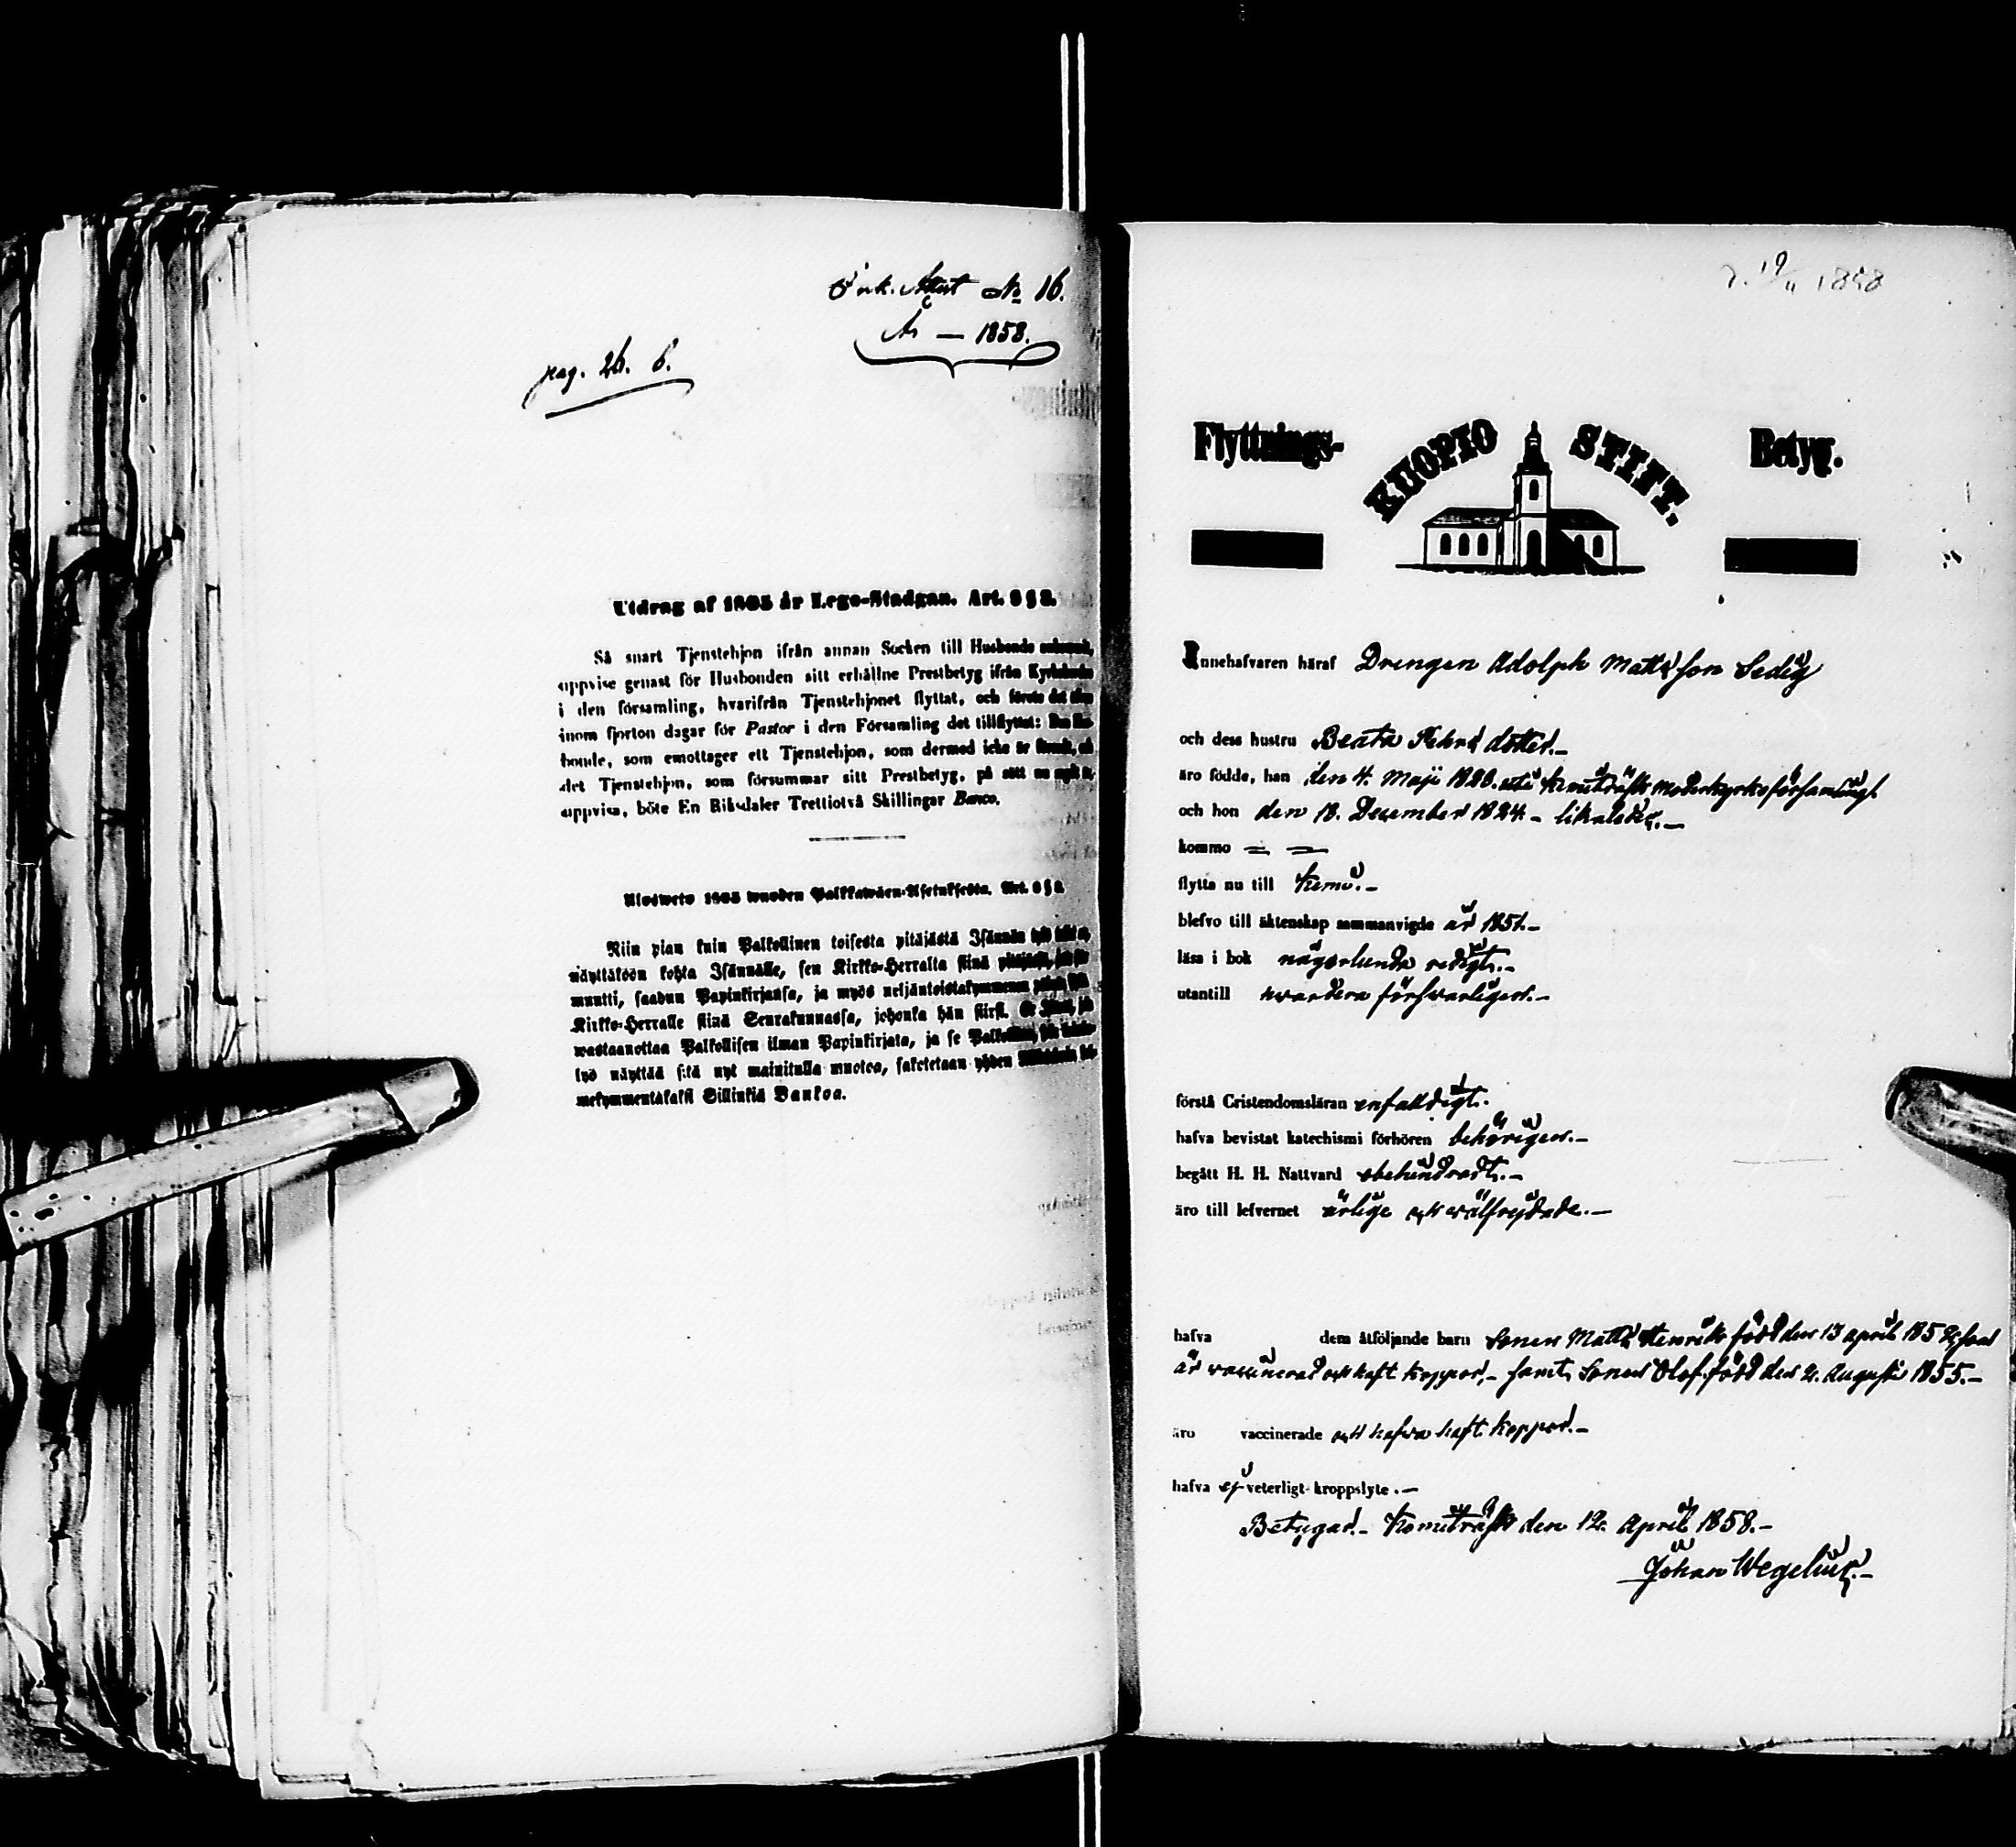 Ink. Attest No 16.
År — 1858.
pag. 26. 6.
Utdrag af 1805 år Lego-Stadgan. Art. 8 § 2.
Så snart Tjenstehjon ifrån annan Socken till Husbonde
uppvise genast för Husbonden sitt erhållne Prestbetyg ifrån
i den församling, hvarifrån Tjenstehjonet flyttat, och förete det
inom fjorton dagar för Pastor i den Församling det tillflyttat:
bonde, som emottager ett Tjenstehjon, som dermed icke är
det Tjenstehjon, som försummar sitt Prestbetyg, på sätt nu
uppvisa, böte En Riksdaler Trettiotvå Skillingar Banco.
Ulosweto 1805 wuoden Palkkawäen-Asetuksesta. Art. 8 § 2.
Niin pian kuin Palkollinen toisesta pitäjästä Isännän
näyttäköön kohta Isännälle, sen Kirkko-Herralta siinä
muutti, saadun Papinkirjansa, ja myös neljäntoistakymmenen
Kirkko-Herralle siinä Seurakunnassa, johonka hän siirsi.
wastaanottaa Palkollisen ilman Papinkirjata, ja se
lyö näyttää sitä nyt mainitulla muotoa, saketetaan yhden
mekymmentäkaksi Sillinkiä Bankoa.
d. 19/4 1858
Flyttnings- KUOPIO STIFT. Betyg.
Innehafvaren häraf Drengen Adolph Matts son Sedig
och dess hustru Beata Pehrs dotter.—
äro födde, han den 4. Maji 1828. uti Kemiträsks moderkyrkoförsamling.
och hon den 18. December 1824. – likaledes.—
kommo = =
flytta nu till Kemi.—
blefvo till äktenskap sammanvigde år 1851.—
läsa i bok någorlunda redigt.—
utantill swardera försvarligen.—
förstå Cristendomsläran enfaldigt.
hafva bevistat katechismi förhören behörigen.—
begått H. H. Nattvard obehindradt.—
äro till lefvernet ärlige och wälfrejdade.—
hafva dem åtföljande barn Sonen Matts Henrik född den 13 april 1852, som
är vaccinerad och haft koppor,– samt Sonen Olof född den 2. Augusti 1855.—
äro vaccinerade och hafva haft koppor.—
hafva ej veterligt kroppslyte.—
Betygar.– Kemiträsk den 12. April 1858.—
Johan Wegelius.—